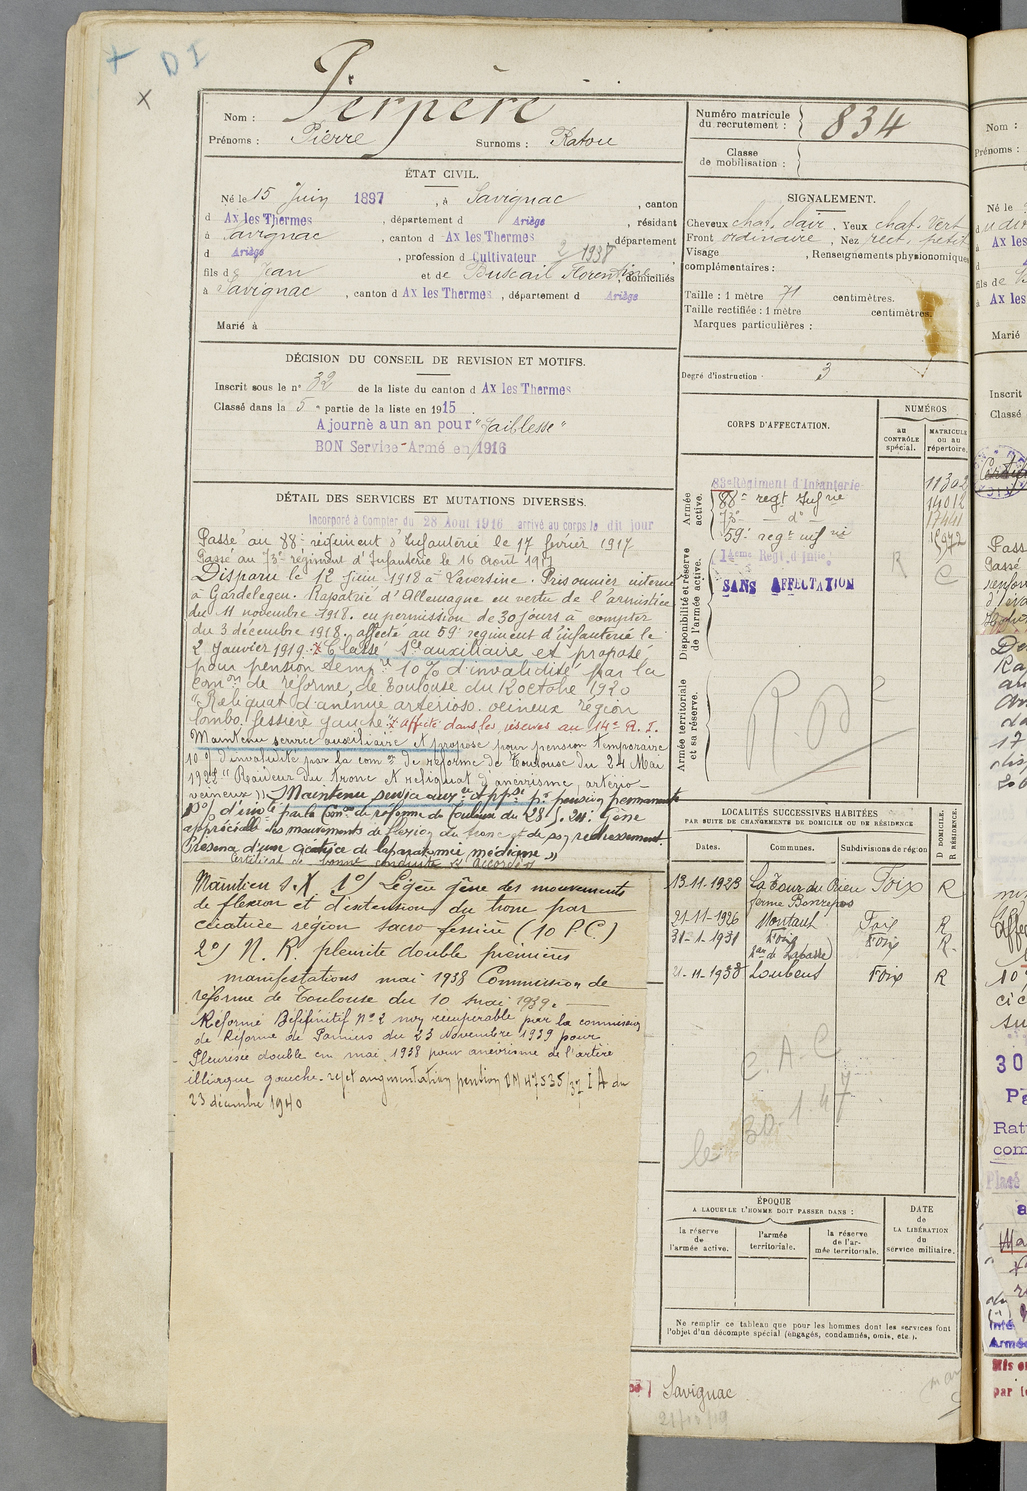 + D I
X
Nom : Perpère
Prénoms : Pierre Surnoms : Ratou
ÉTAT CIVIL.
Né le 15 Juin 1897, à Savignac, canton
d Ax les Thermes, département d Ariège, résidant
à Savignac, canton d Ax les Thermes département
d Ariège, profession d Cultivateur 2 1938
fils de Jean et de Buscail Florentine, domiciliés
à Savignac, canton d Ax les Thermes, département d Ariège
Marié à
DÉCISION DU CONSEIL DE REVISION ET MOTIFS.
Inscrit sous le n° 32 de la liste du canton d Ax les Thermes
Classé dans la 5 e partie de la liste en 1915.
Ajourné a un an pour "Faiblesse"
BON Service Armé en 1916
DÉTAIL DES SERVICES ET MUTATIONS DIVERSES.
Incorporé à Compter du 28 Août 1916 arrivé au corps le dit jour
Passé au 88e régiment d'Infanterie le 17 février 1917
Passé au 73e régiment d'Infanterie le 16 août 1917
Disparu le 12 juin 1918 à Laversine. Prisonnier interné
à Gardelegen. Rapatrié d'Allemagne en vertu de l'armistice
du 11 novembre 1918. en permission de 30 jours à compter
du 3 décembre 1918. affecté au 59e régiment d'infanterie le
2 Janvier 1919. Classé sce auxiliaire et proposé
pour pension temp re 10% d'invalidité par la
com on de réforme de Toulouse du 12 octobre 1920
"Reliquat d'anévrie artérioso. veineux région
lombo fessière gauche" affecté dans les réserves au 14e R. I.
Maintenu service auxiliaire et proposé pour pension temporaire
10% d'invalidité par la com on de réforme de Toulouse du 24 Mai
1922 "Raideur du tronc et reliquat d'anévrisme artério
veineux" Maintenu service aux re et pp sé pr pension permanente
10% d'inv té par la Com on de réforme de Toulouse du 28.5.24: gêne
appréciable des mouvements de flexion du tronc et de son redressement.
Présence d'une cicatrice de laparatomie médiane"
Certificat de bonne conduite "Accordé"
Maintien s. X. 1°) Légère gêne des mouvements
de flexion et d'extension du tronc par
cicatrice région sacro fessière (10 P.C.)
2°) N. R. pleurite double premières
manifestations mai 1938 Commission de
réforme de Toulouse du 10 mai 1939.
Réformé Définitif N°2 non récupérable par la commission
de Réforme de Pamiers du 23 Novembre 1939 pour
Pleurésie double en mai 1938 pour anévrisme de l'artère
illiaque gauche. rejet augmentation pension DM 47535/37 I A du
23 décembre 1940
Numéro matricule du recrutement : 834
Classe de mobilisation :
SIGNALEMENT.
Cheveux chat. clair, Yeux chat. Vert
Front ordinaire, Nez rect. petit
Visage , Renseignements physionomiques
complémentaires :
Taille : 1 mètre 71 centimètres.
Taille rectifiée : 1 mètre centimètres.
Marques particulières :
Degré d'instruction 3
CORPS D'AFFECTATION.
NUMÉROS
au CONTRÔLE spécial.
MATRICULE ou au répertoire.
Armée active.
83e Régiment d'Infanterie 11302
88e regt Inf rie 14012
73e — d° — 17441
59e regt inf rie
Disponibilité et réserve de l'armée active.
14eme Regt. d'Inf.ie R C
SANS AFFECTATION
Armée territoriale et sa réserve.
R D 2
LOCALITÉS SUCCESSIVES HABITÉES
PAR SUITE DE CHANGEMENTS DE DOMICILE OU DE RÉSIDENCE
Dates. Communes. Subdivisions de région D DOMICILE. R RÉSIDENCE.
13.11.1923 La Tour du Crieu Foix R
ferme Bonrepos
21-11-1926 Montaut Foix R
31-1-1931 Foix Foix R.
21-11-1938 Loubens Foix R
C.A.C
le 30.1.47
ÉPOQUE
A LAQUELLE L'HOMME DOIT PASSER DANS :
la réserve de l'armée active.
l'armée territoriale.
la réserve de l'armée territoriale.
DATE de LA LIBÉRATION du service militaire.
Ne remplir ce tableau que pour les hommes dont les services font
l'objet d'un décompte spécial (engagés, condamnés, omis, etc.).
Savignac